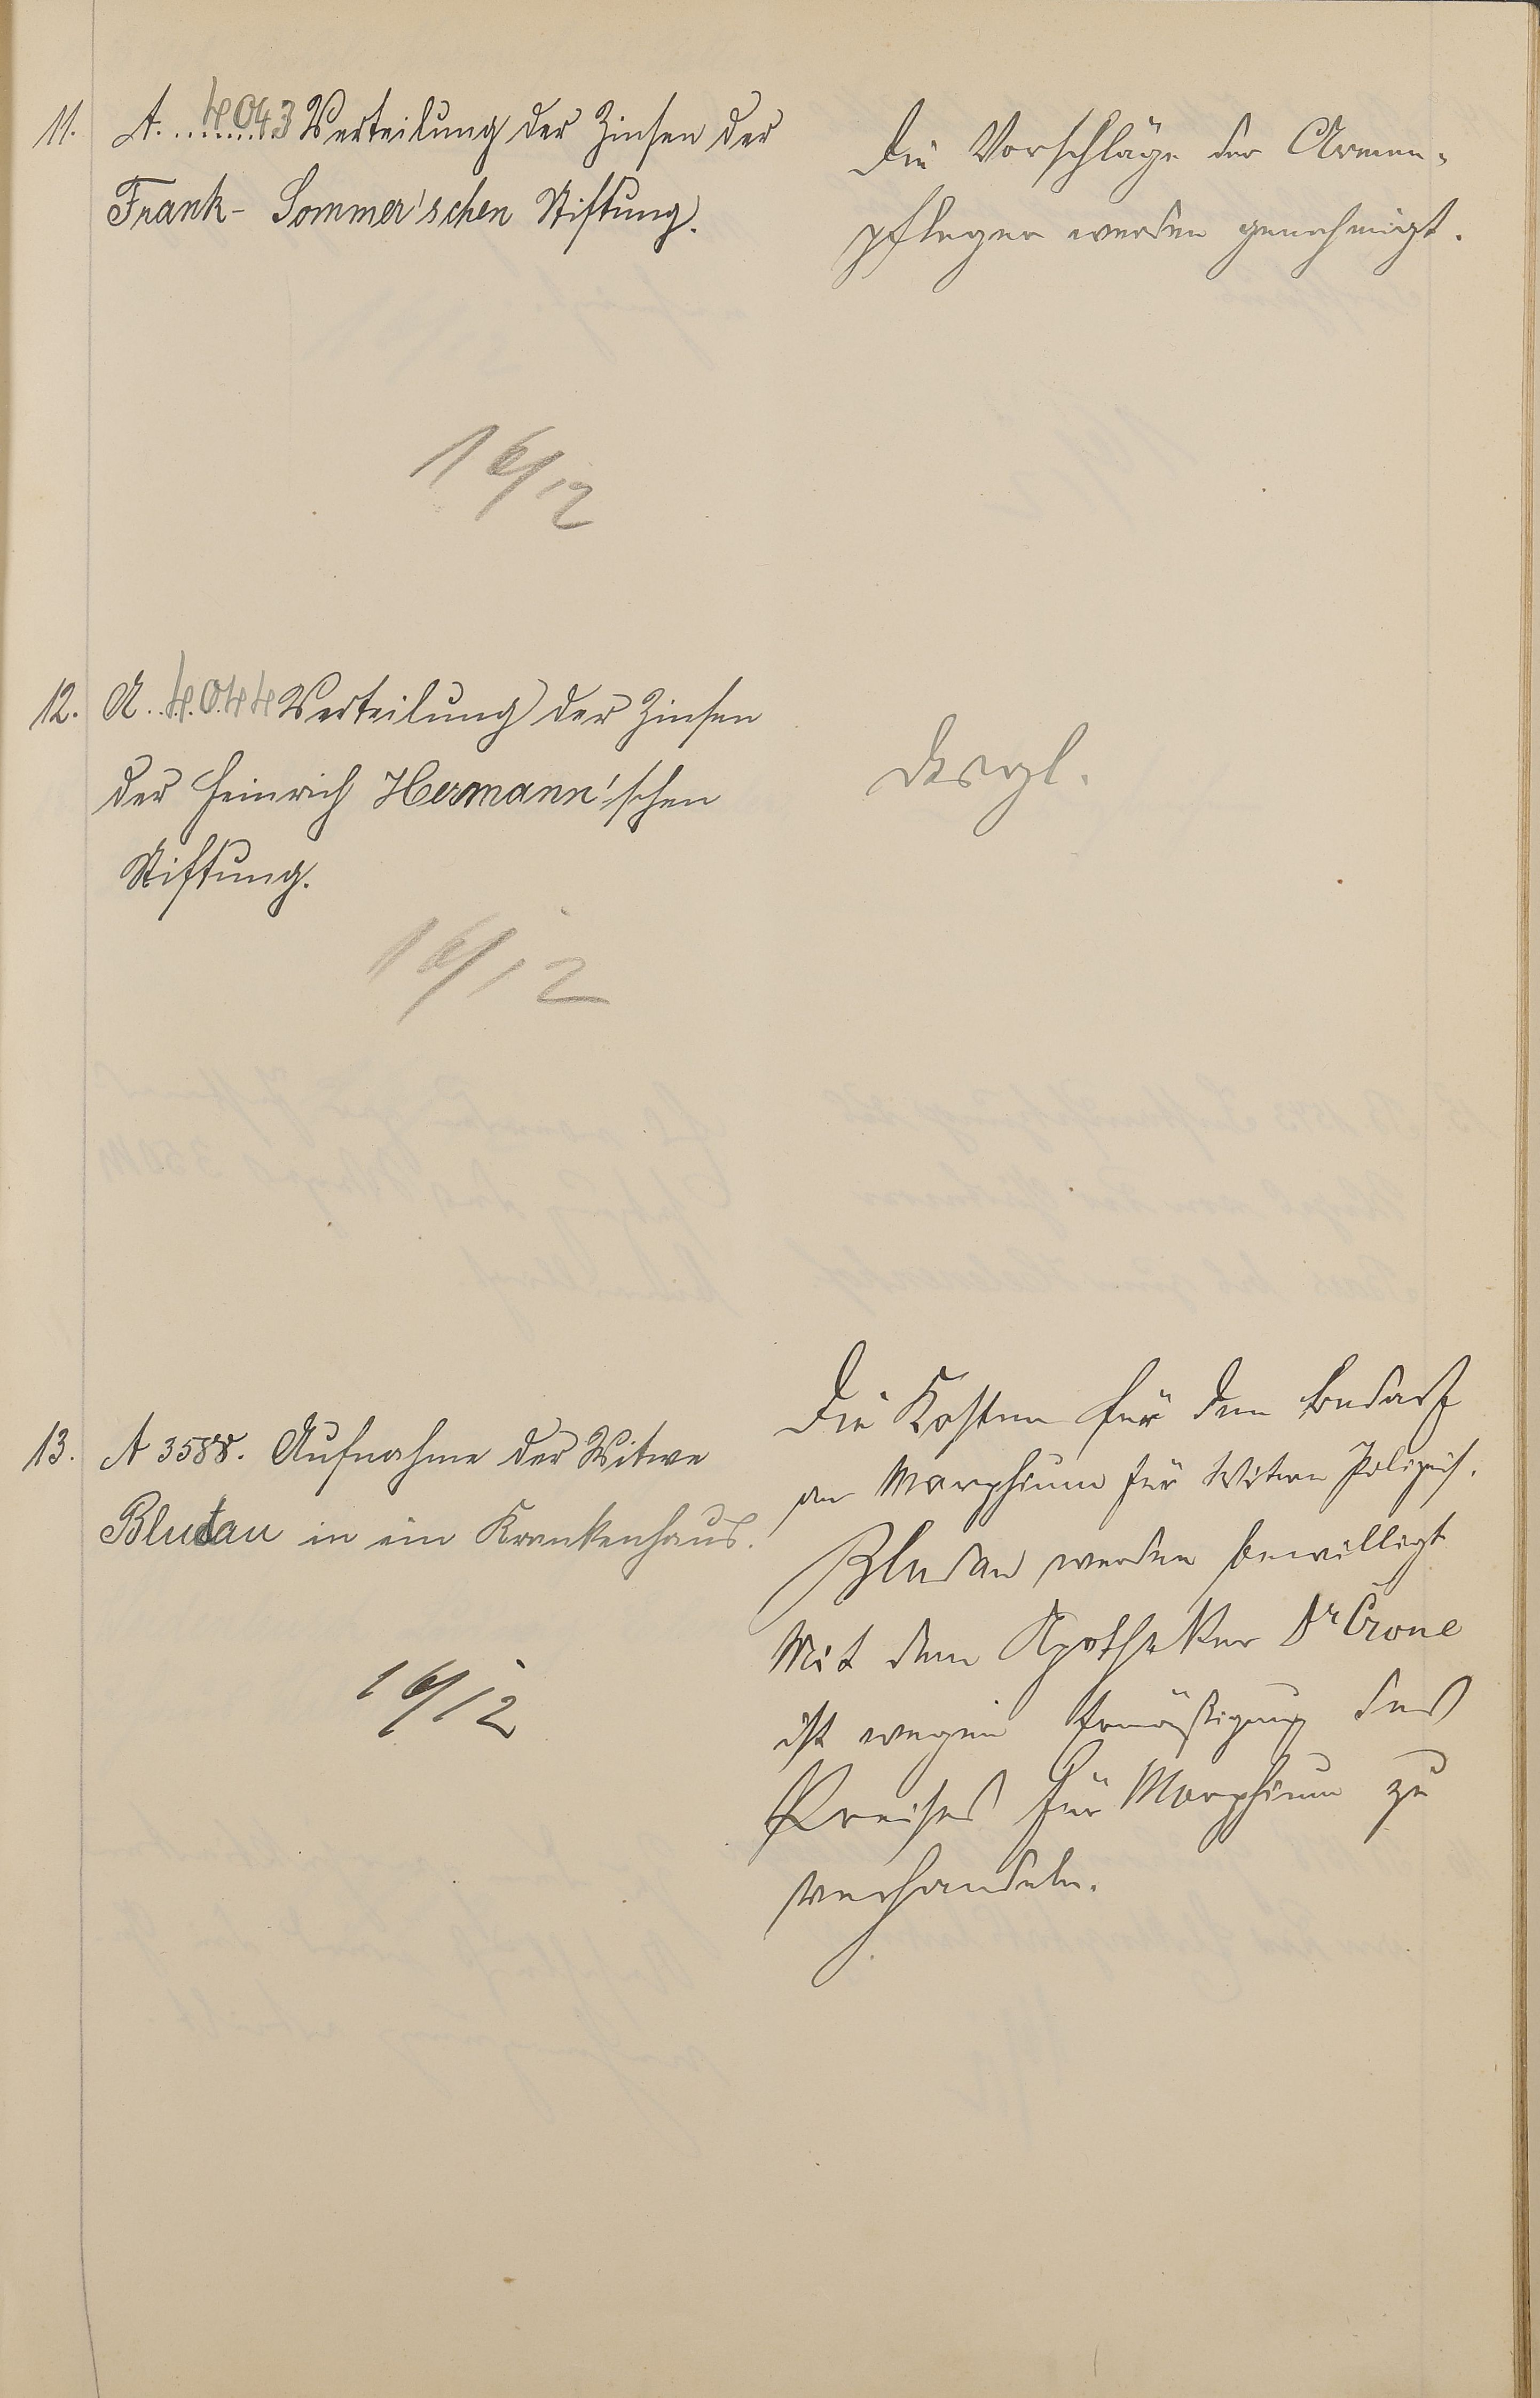 11. A. 4043 Verteilung der Zinsen der
Frank- Sommer'schen Stiftung.
Die Vorschläge der Armen-
pfleger werden genehmigt.
16/12
12. A. 4044 Verteilung der Zinsen
der Heinrich Hermann'schen
Stiftung.
desgl.
16/12
13. A 3588. Aufnahme der Witwe
Bludau in ein Krankenhaus.
16/12
Die Kosten für den Bedarf
an Morphium für Witwe
Bludau werden bewilligt
Mit dem Apotheker Dr Crone
ist wegen Ermäßigung des
Preises für Morphium zu
verhandeln.